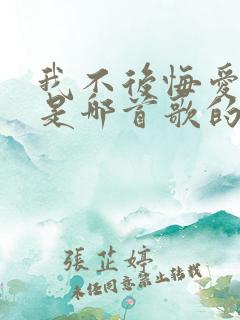 我不後悔愛
是那首歌的
張芷婷
未经同意禁止转载